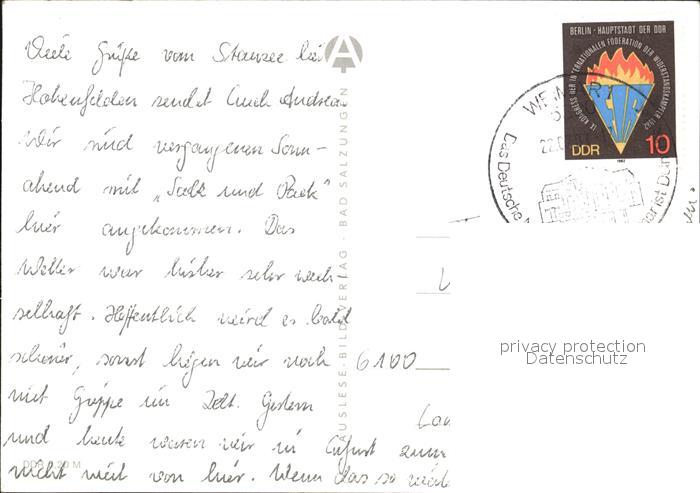 Viele Grüße vom Stausee bei
Hohenfelden sendet Euch Andrea
Wir sind vergangenen Sonn-
abend mit „Sack und Pack"
hier angekommen. Das
Wetter war bisher sehr wech
selhaft. Hoffentlich wird es bald
schöner, sonst liegen wir noch
mit Grippe im Zelt. Gestern
und heute waren wir in Erfurt zum
nicht weit von hier. Wenn das so weit
6100
AUSLESE-BILD-VERLAG · BAD SALZUNGEN
A
DDR 0,20 M
BERLIN · HAUPTSTADT DER DDR
IX. KONGRESS DER INTERNATIONALEN FÖDERATION DER WIDERSTANDSKÄMPFER 1982
FIR
DDR 10
1982
Das Deutsche
privacy protection
Datenschutz